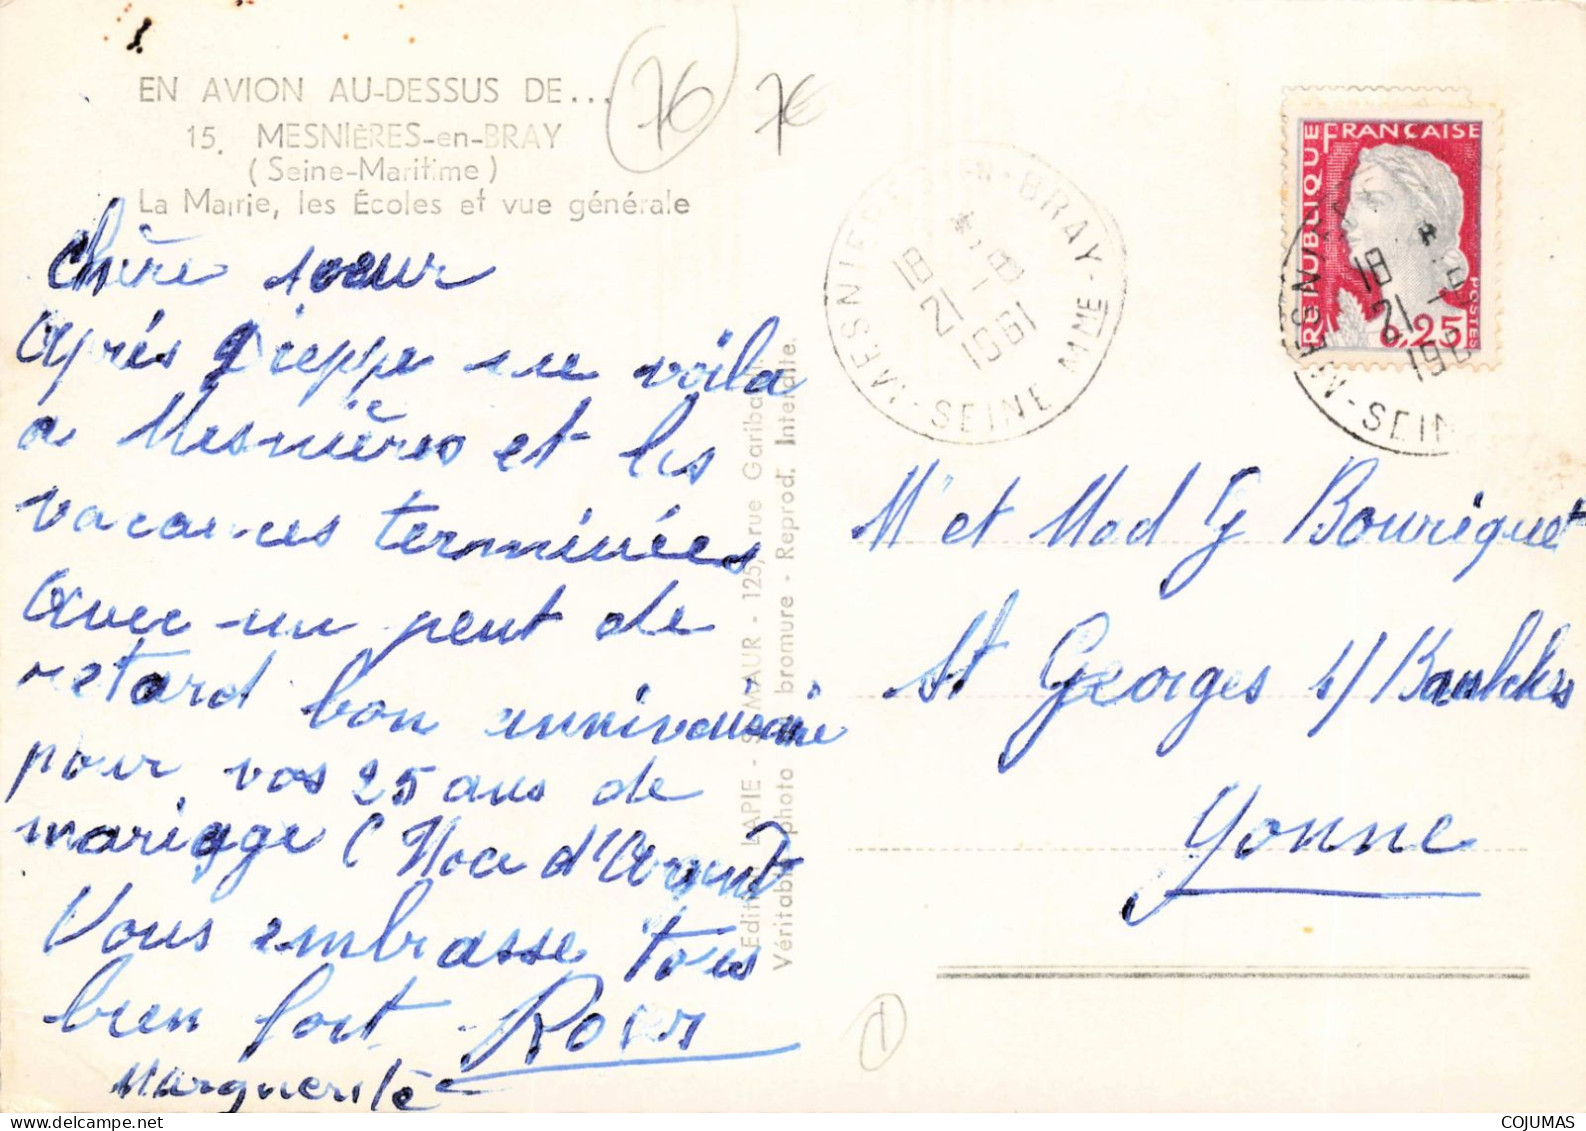 EN AVION AU-DESSUS DE...
15. MESNIÈRES-en-BRAY
(Seine-Maritime)
La Mairie, les Écoles et vue générale
76
76
chère soeur
après Dieppe me voila
a Mesnières et les
vacances terminées
avec un peut de
retard bon anniversaire
pour vos 25 ans de
mariage (Noce d'Argent)
Vous embrasse tous
bien fort Roger
Marguerite
Edit. LAPIE - ST-MAUR - 125, rue Garibaldi
Véritable photo bromure - Reprod. Interdite.
MESNIERES-EN-BRAY
18
21 - 8
1961
SEINE MME
REPUBLIQUE FRANÇAISE
0,25
POSTES
18
21
196
SEIN
Mr et Mad G Bourriquet
St Georges s/ Baulches
Yonne
1
COJUMAS